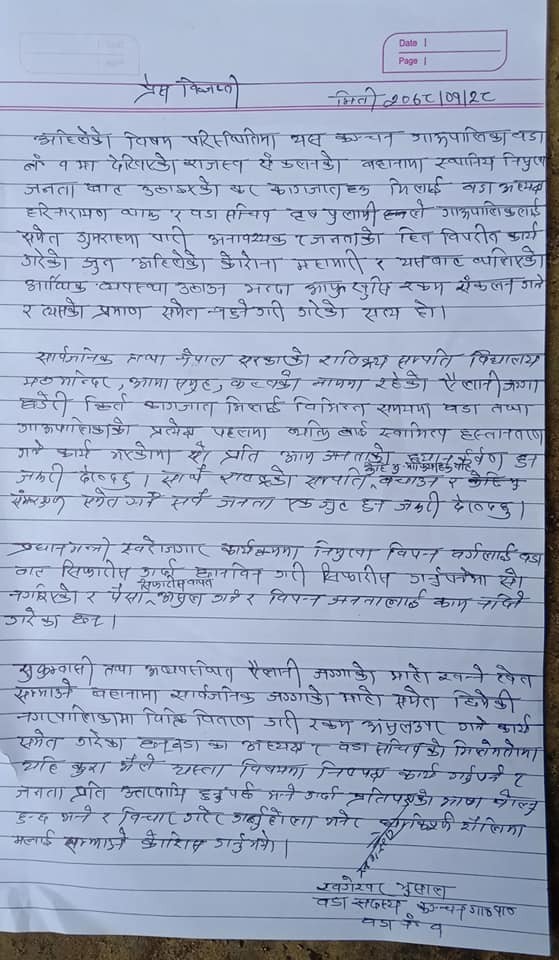 Date |
Page |
प्रेस विज्ञप्ती
मिती २०७८/०१/२८
अहिलेको विषम परिस्थितिमा यस कञ्चन गाऊपालिका वडा
नं १ मा देखिएको राजस्व संकलनको बहानामा स्थानिय निमुखा
जनता बाट उठाइएको कर कागजातहरु मिलाई वडा अध्यक्ष
हरिनारायण र वडा सचिव गाऊपालिकालाई
समेत गुमराहमा पारी अनावश्यक र जनताको हित विपरीत कार्य
गरेको जुन अहिलेको कोरोना महामारी र यसबाट
आर्थिक व्यवस्था उठाउन भरदा आफुखुसि रकम संकलन गर्ने
र त्यसको प्रमाण समेत गरी गरेको सत्य हो।
सार्वजनिक तथा नेपाल सरकारको सम्पति विद्यालय
मठमन्दिर, आमा समुह, क्लवको नाममा रहेको ऐलानी जग्गा
किर्ते कागजात मिलाई विभिन्न समयमा वडा तथा
गाऊपालिकाको प्रत्येक पहलमा व्यक्ति लाई स्वामित्व हस्तान्तरण
गर्ने कार्य गरेकोमा सो प्रति आम जनताको ध्यानाकर्षण हुन
जरुरी देख्दछु। सार्थै राष्ट्रको सम्पति बचाउन र
संरक्षण समेत गर्न सबै जनता एकजुट हुन जरुरी देख्दछु।
प्रधानमन्त्री स्वरोजगार कार्यक्रममा निमुखा विपन्न वर्गलाई वडा
बाट सिफारीस गरी सिफारीस गर्नुपर्नेमा सो
नगरिएको र पैसा सिफारीस वापत असुल गर्ने र विपन्न जनतालाई काम नदिने
गरेका छन्।
सुकुम्वासी तथा अव्यवस्थित ऐलानी जग्गाको माटो खन्ने खेत
सम्माउने बहानामा सार्वजनिक जग्गाको माटो समेत छिमेकी
नगरपालिकामा विक्रि वितरण गरी रकम असुलउपर गर्ने कार्य
समेत गरेका छन् वडा का अध्यक्ष र वडा सचिवको मिलेमतोमा
यहि कुरा मैले यस्ता विषयमा निष्पक्ष कार्य गर्नुपर्ने र
जनता प्रति उत्तरदायि हुनुपर्छ भन्ने गर्दा प्रतिपक्षको भाषा बोल्नु
हुन्छ भन्ने र विचार गरेर गर्नुहोला भनेर शैलिमा
मलाई सम्झाउने कोशिस गर्नुभयो।
खगेश्वर भुसाल
वडा सदस्य कञ्चन गाऊपा
वडा नं १